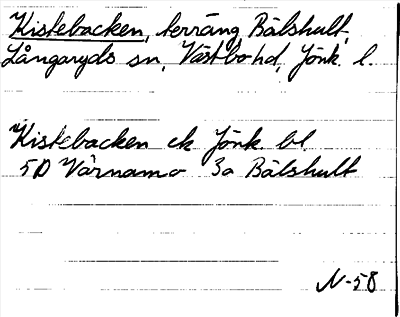 Kistebacken, terräng Bälshult,
Långaryds sn, Västbo hd, Jönk. l.
Kistebacken ek Jönk bl.
5D Värnamo 3a Bälshult
N-58